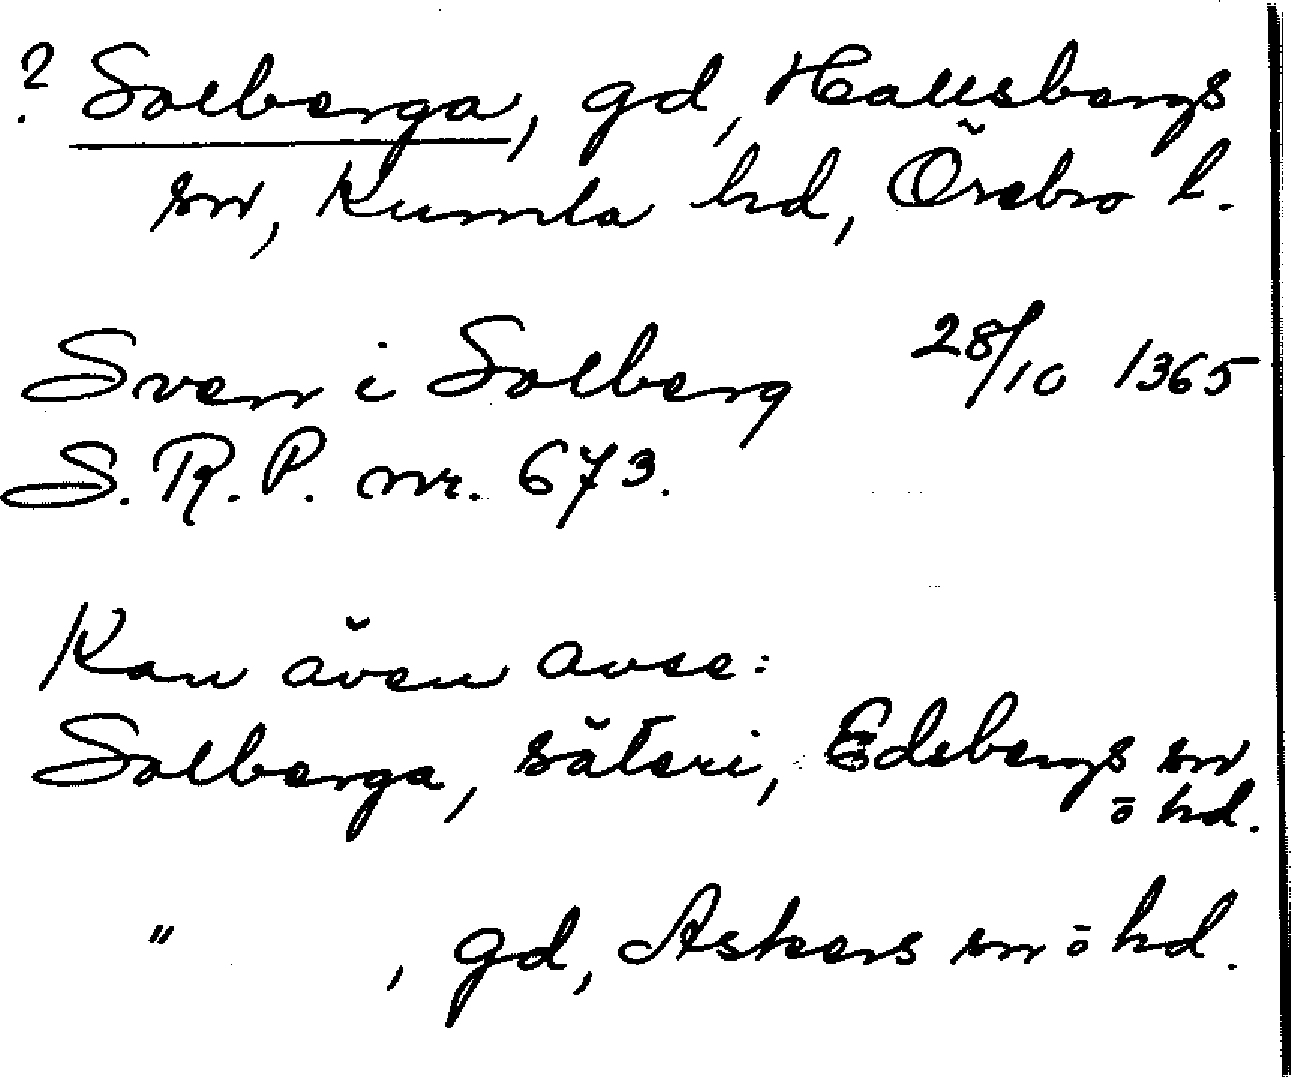 ? Solberga, gd, Hallsbergs
sn, Kumla hd, Örebro l.
Sven i Solberg 28/10 1365
S.R.P. nr. 673.
Kan även avse:
Solberga, säteri, Edsbergs sn
o hd.
" , gd, Askers sn o hd.